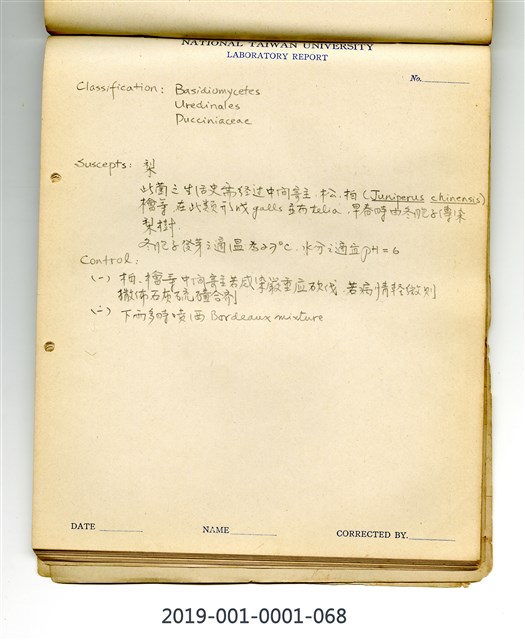 NATIONAL TAIWAN UNIVERSITY
LABORATORY REPORT
No.
Classification: Basidiomycetes
Uredinales
Pucciniaceae
Suscepts: 梨
此菌之生活史需經过中间寄主,松、柏(Juniperus chinensis)
檜等 在此類形成galls 与telia,早春時由冬胞子傳染
梨樹
冬胞子發芽之適温為27°C, 水分之適宜pH=6
Control:
(一) 柏、檜等中间寄主若感染嚴重应砍伐,若病情輕微則
撒佈石灰硫磺合剤
(二) 下雨多時噴洒Bordeaux mixture
DATE
NAME
CORRECTED BY.
2019-001-0001-068